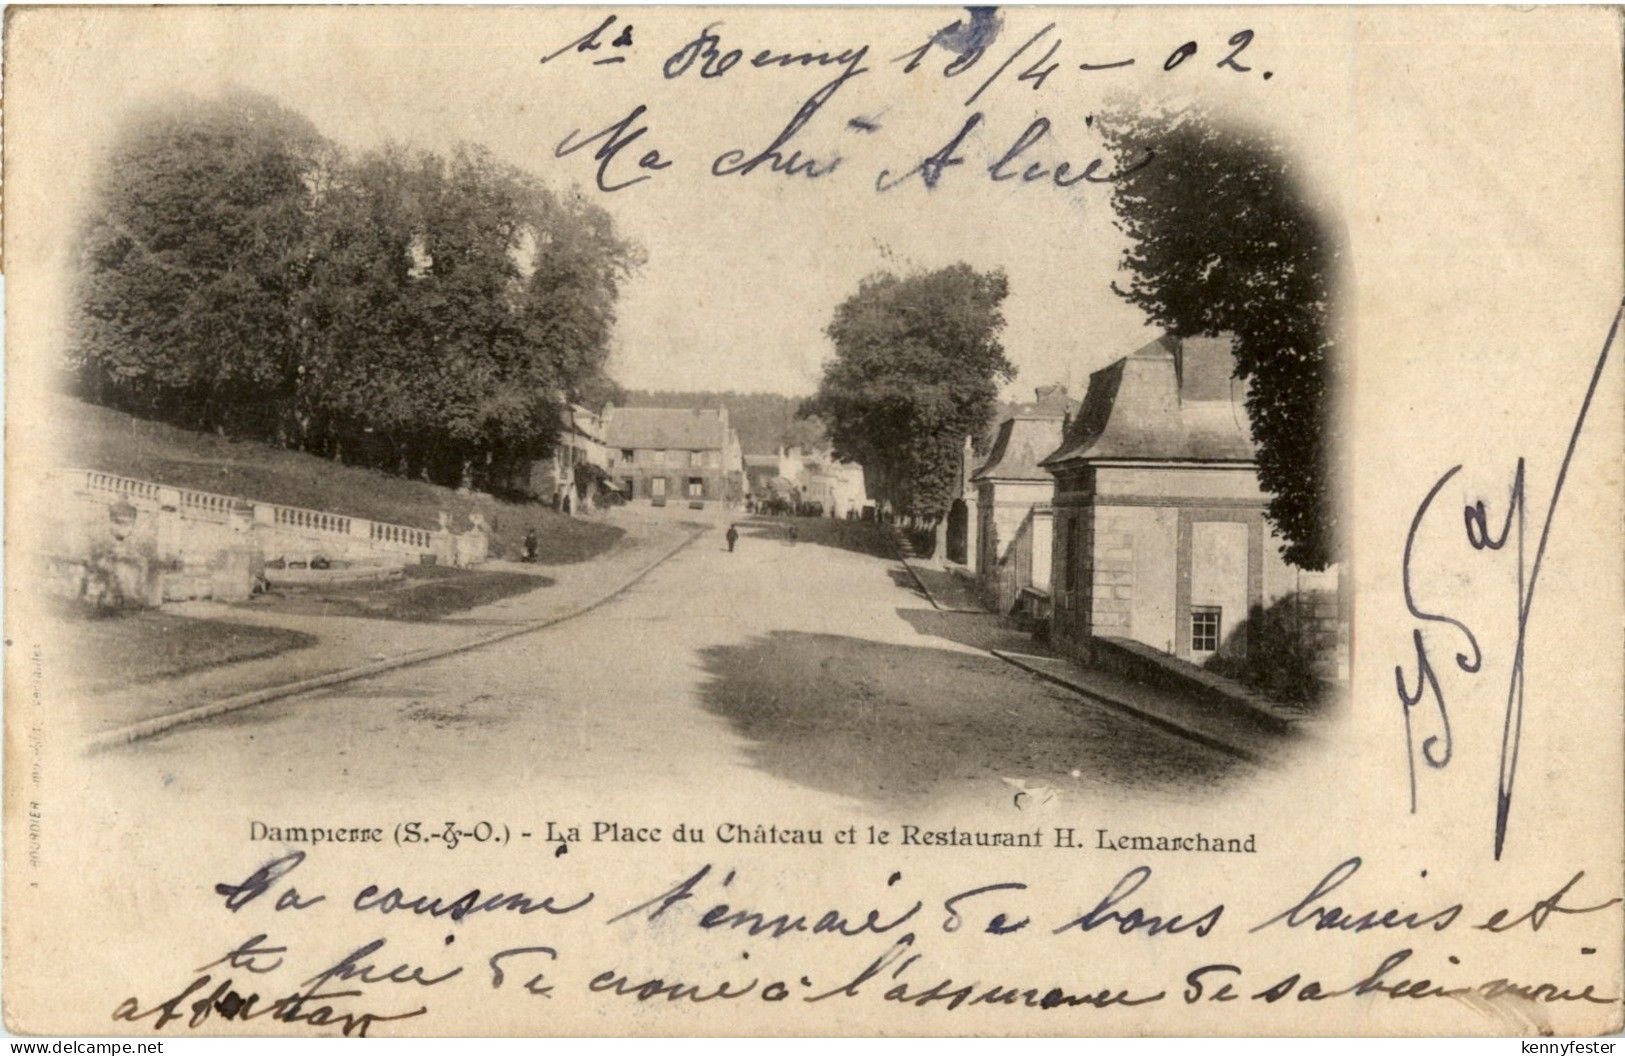 St Remy 18/4 - 02.
Ma cher Alice
Dampierre (S.-&-O.) - La Place du Château et le Restaurant H. Lemarchand
Ta cousine t'envoie de bons baisers et
te prie de croire à l'assurance de sa bien
affection
BOURDIER
Delcampe.net
kennyfester